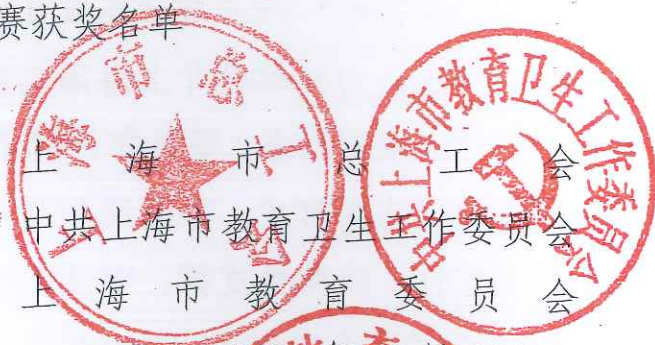 赛获奖名单
上海市总工会
中共上海市教育卫生工作委员会
上海市教育委员会
上海市总工会
中共上海市教育卫生工作委员会